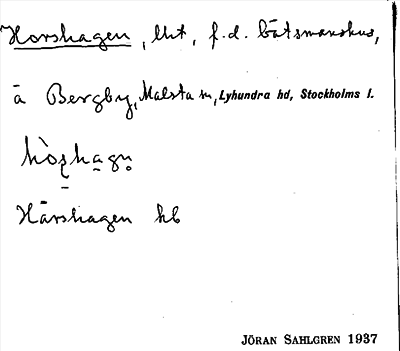 Horshagen, lht, f.d. båtsmanshus,
å Bergby, Malsta sn, Lyhundra hd, Stockholms l.
Hårshagen hb
JÖRAN SAHLGREN 1937